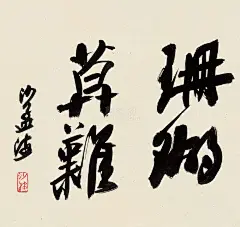 珊瑚
莫難
沙孟海